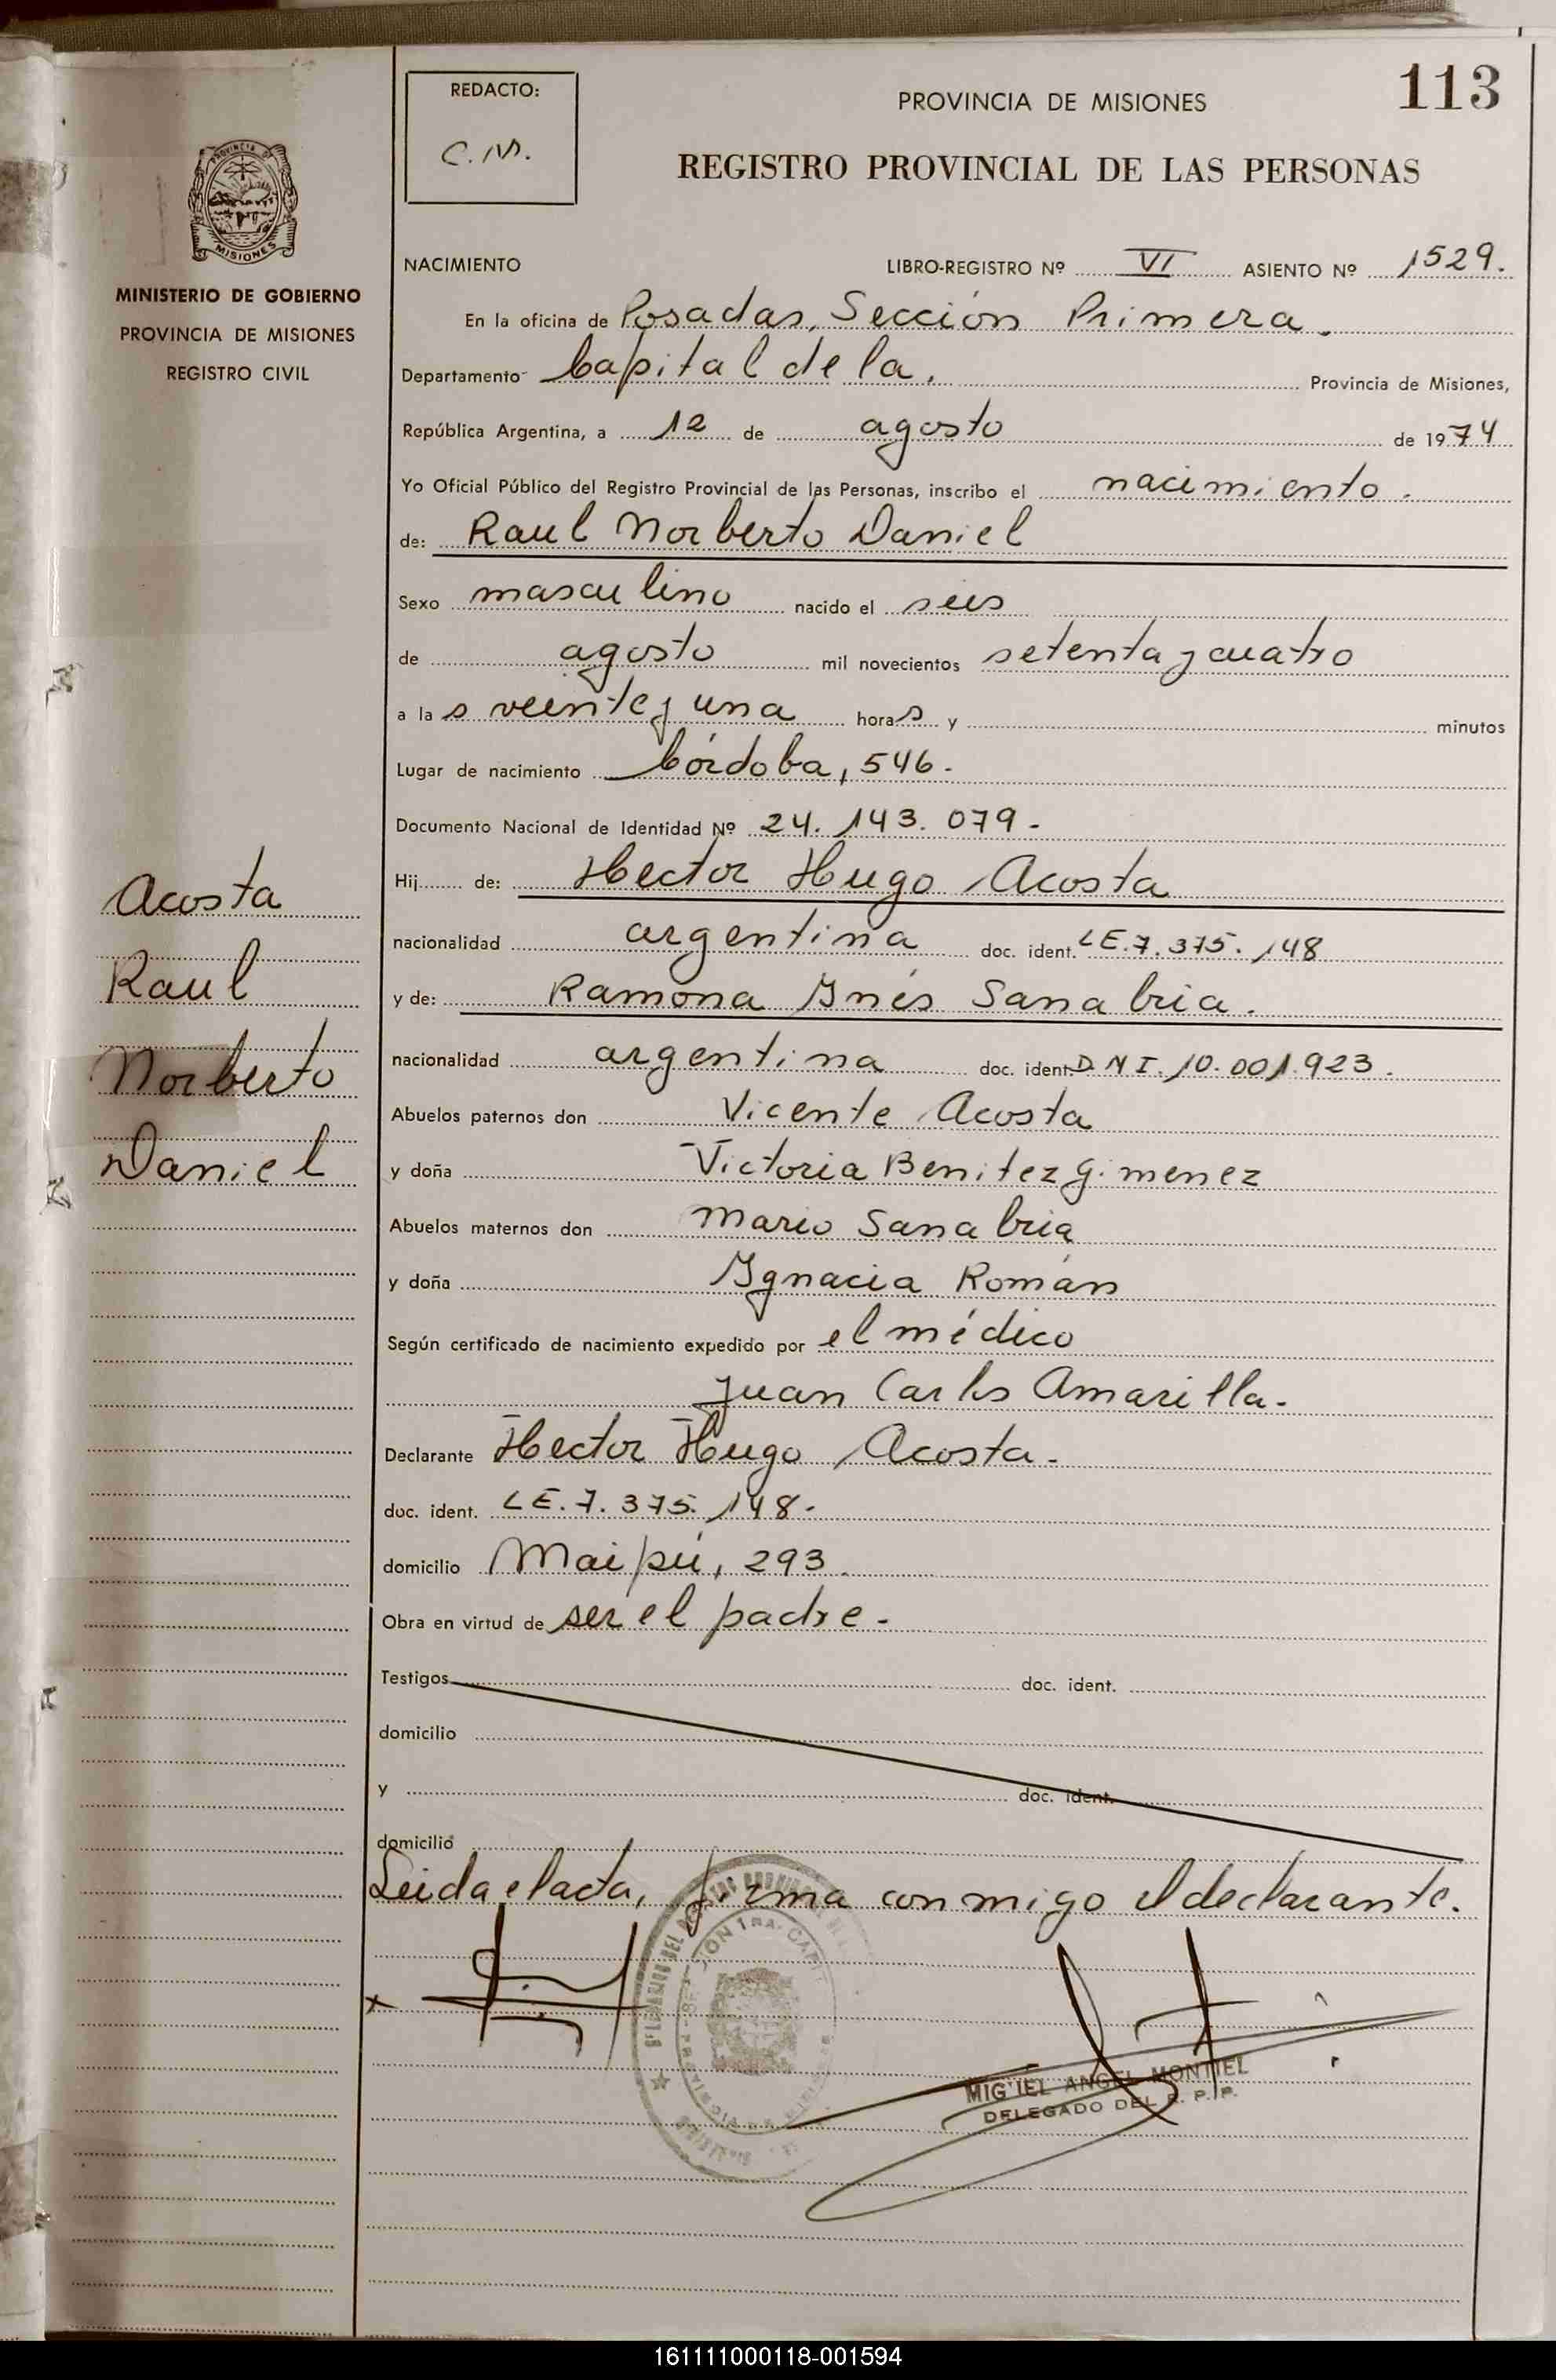 113
REDACTO:
C.M.
PROVINCIA DE MISIONES
REGISTRO PROVINCIAL DE LAS PERSONAS
PROVINCIA DE
MISIONES
MINISTERIO DE GOBIERNO
PROVINCIA DE MISIONES
REGISTRO CIVIL
NACIMIENTO LIBRO-REGISTRO Nº VI ASIENTO Nº 1529.
En la oficina de Posadas, Sección Primera.
Departamento Capital de la, Provincia de Misiones,
República Argentina, a 12 de agosto de 1974
Yo Oficial Público del Registro Provincial de las Personas, inscribo el nacimiento.
de: Raul Norberto Daniel
Sexo masculino nacido el seis
de agosto mil novecientos setenta y cuatro
a las veinte y una horas y minutos
Lugar de nacimiento Córdoba, 546.
Documento Nacional de Identidad Nº 24.143.079.
Hij de: Hector Hugo Acosta
nacionalidad argentina doc. ident. LE.7.375.148
y de: Ramona Inés Sanabria.
nacionalidad argentina doc. ident D.N.I. 10.001.923.
Abuelos paternos don Vicente Acosta
y doña Victoria Benitez Gimenez
Abuelos maternos don Mario Sanabria
y doña Ignacia Román
Según certificado de nacimiento expedido por el médico
Juan Carlos Amarilla.
Declarante Hector Hugo Acosta.
doc. ident. LE.7.375.148.
domicilio Maipú, 293.
Obra en virtud de ser el padre.
Testigos doc. ident.
domicilio
y doc. ident.
domicilio
Leida el acta, firma conmigo el declarante.
x
MIGUEL ANGEL MONTIEL
DELEGADO DEL R. P. P.
Acosta
Raul
Norberto
Daniel
161111000118-001594